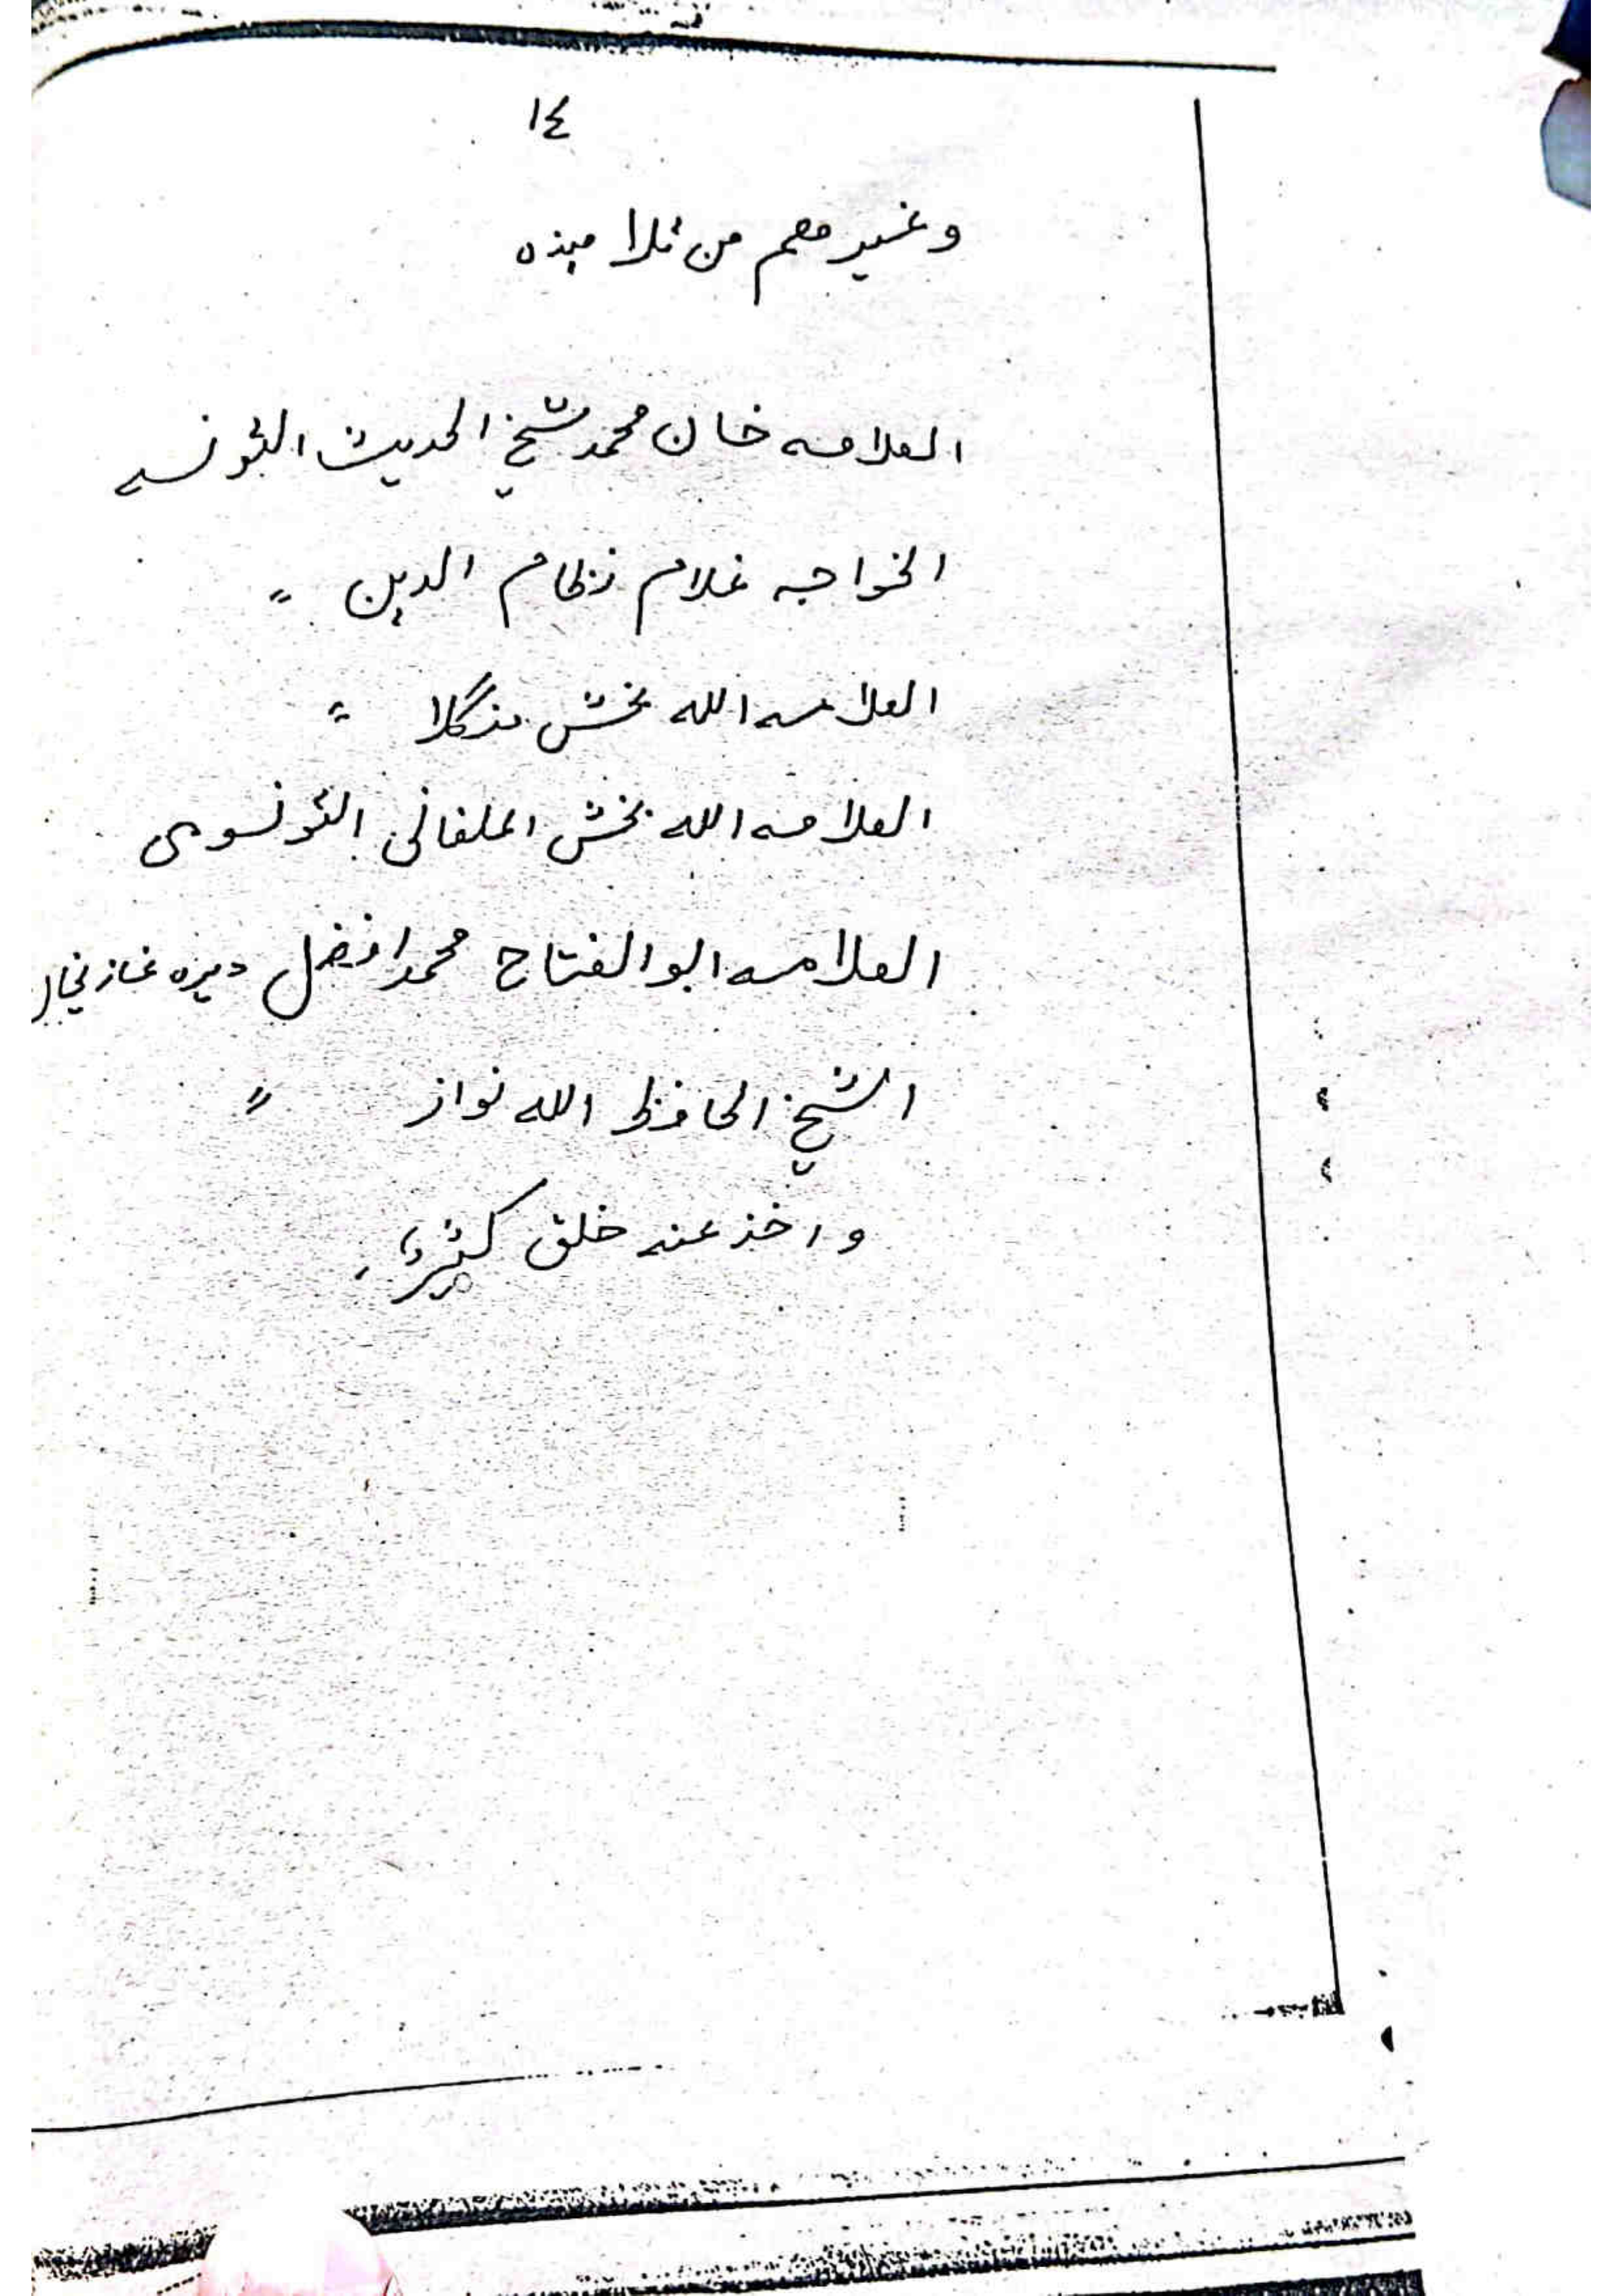 ١٤
وغيرهم من تلاميذه
العلامه خان محمد شيخ الحديث التونسه
الخواجه غلام نظام الدين 〃
العلامه الله بخش 〃
العلامه الله بخش الملغانی التونسوی
العلامه ابو الفتاح محمد افضل ديره غازيخان
الشيخ الحافظ الله نواز 〃
واخذ عنه خلق كثير،